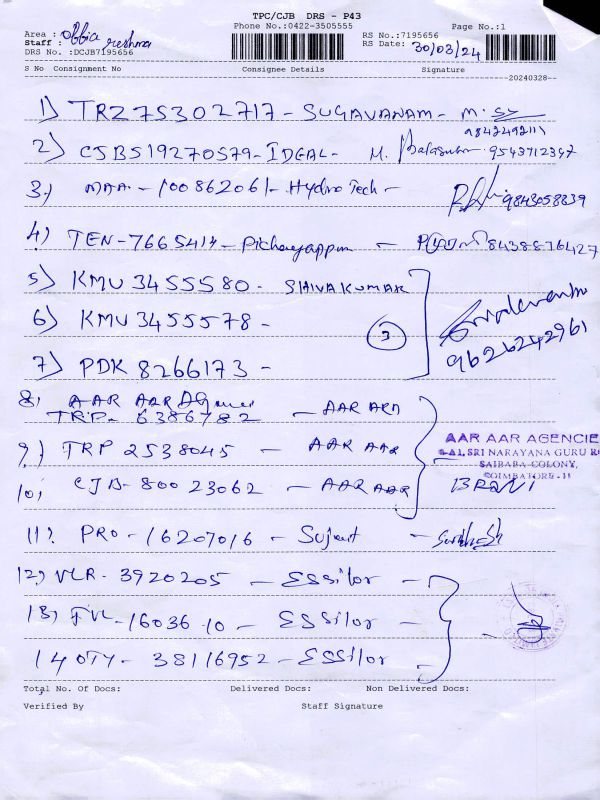 TPC/CJB DRS - P43
Phone No.:0422-3505555 Page No.:1
Area : Obbia
Staff : reshma RS No.:7195656
DRS No. :DCJB7195656 RS Date: 30/03/24
S No Consignment No Consignee Details Signature
20240328--
1) TRZ75302717 - SUGAVANAM - M.
9842492111
2) CJB519270579 - IDEAL - M. Balasubr 9543712347
3) MAA - 100862061 - Hydro Tech - 9843058839
4) TEN - 7665414 - Pichaiyappan - 8438876427
5) KMU 3455580 - SHIVAKUMAR
6) KMU 3455578 -
3
9626242961
7) PDK 8266173 -
8) AAR AAR
TRP - 6386782 - AAR ARA
9) TRP 2538045 - AAR AAR
AAR AAR AGENCIE
SRI NARAYANA GURU R
SAIBABA COLONY,
COIMBATORE-11
10) CJB - 80023062 - AAR AAR BRANI
11) PRO - 16207016 - Sujeet -
12) VLR - 3920205 - ESSilor -
13) FVL - 16036 10 - ESSilor
14 OTY - 38116952 - ESSilor
Total No. Of Docs: Delivered Docs: Non Delivered Docs:
Verified By Staff Signature